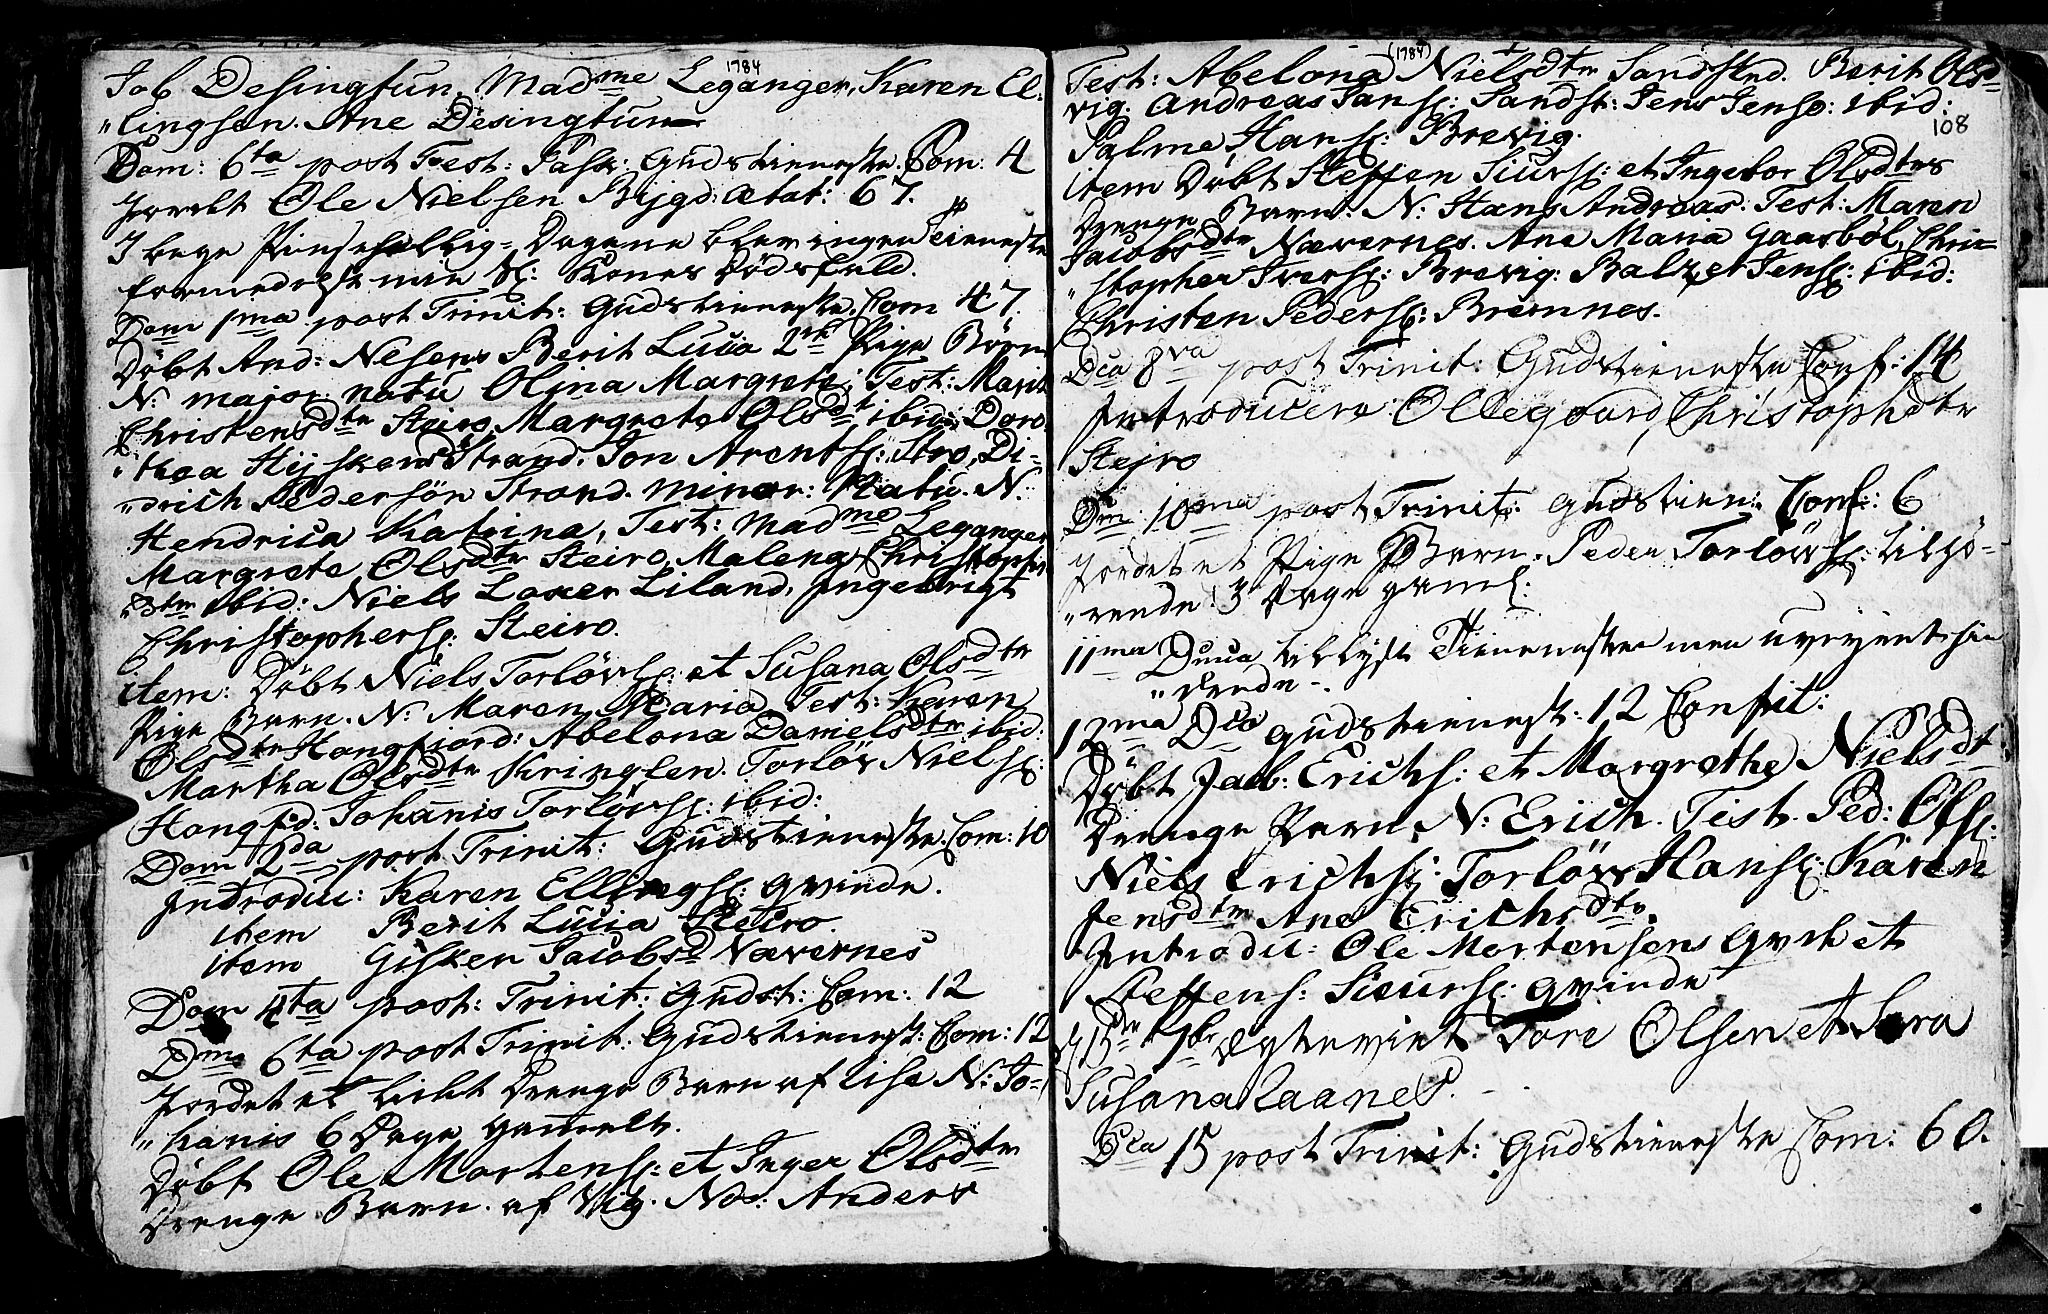 1784
Job Desingtun, Madme Leganger, Karen El-
"lingsen. Ane Desingtun
Dom: 6ta post Fest: Pask: Gudstieneste. Com: 4
Jordet Ole Nielsen Bygd: ætat: 67.
I bege Pinsehellig-Dagene blev ingen tieneste
formedelst min Sl: Kones Dödsfald.
Dom 1ma post Trinit: Gudstieneste. Com 47.
Döbt And: Nesens Berit Lucia 2de Pige Börn
N. major natu Olina Margrete. Test: Marit
Christensdtr Steiro, Margrete Olsdt ibid: Doro-
"thea Hysken Strand, Jon Arentss: Stro, Di-
"drich Pedersön Strand. minor: Natu. N.
Hendrica Katrina, Test: Madme Leganger
Margrete Olsdtr Steiro, Malena Christopher
Dtr ibid: Niels Laxer Liland, Ingebrigt
Christophers: Steiro.
item: Döbt Niels Torlövs: et Susana Olsdtr
Pige Barn. N: Maren Maria. Test: Karen
Olsdtr Hongfiord: Abelona Danielsdtr ibid:
Martha Olsdtr Kringlen. Torlöv Niels:
Hongfd: Johanis Torlövs: ibid:
Dom 2da post Trinit: Gudstieneste. Com: 10
Introdu: Karen Ellingss: qvinde.
item Berit Lucia Steiro.
item Gisken Jacobsd Nævernes
Dom 4ta post: Trinit: Gudst: Com: 12
Dme 6ta post Trinit: Gudstienest: Com: 12
Jordet et lidet Drenge Barn af lise N: Jo-
"hanis 6 Dage gammelt.
Döbt Ole Mortens: et Inger Olsdtr
Drenge Barn. af Vig. Nos: Anders
(1784)
108
Test: Abelona Nielsdtr Sandsknd. Berit Olsd
vig. Andreas Jans: Sandst: Jens Jens: ibid:
Palme Hans: Brevig.
item Döbt Steffen Siurs: et Ingebor Olsdtrs
Drenge Barn. N: Hans Andreas. Test: Maren
Jacobsdtr Nævernes. Ane Mana Gaasböl, Chri-
"stopher Ivers: Brevig: Balzer Jens: ibid:
Christen Peders: Bremnes.
Dca 8va post Trinit: Gudstieneste Conf: 14
Introducere Ollegaard Christophdtr
Stejro
Dm: 10ma post Trinit: Gudstien: Conf: 6
Jordet et Pige Barn. Peder Torlövs: Lilyö-
"rende 3 Dage gaml:
11ma Duca tillyst Tienesten men uveyent hin-
"drede -.
12ma Dca Gudstienest: 12 Confit:
Döbt Jacb: Erichs: et Margrethe Nielsdt:
Drenge Barn, N: Erich. Test. Ped: Ols:
Niels Erichs: Torlöv Hans: Karen
Jensdtr Ane Erichsdtr.
Introdu: Ole Mortensens qvde et
Steffens: Siurs: qvinde
d 15de 7br ægteviet Tore Olsen et Sara
Susana Raanes. -
Dca 15 post Trinit: Gudstieneste Com: 60.